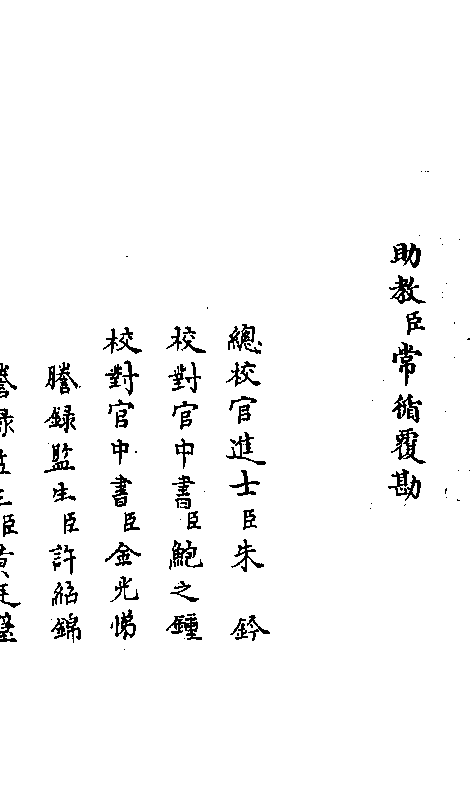 助教臣常循覆勘
總校官進士臣朱鈐
校對官中書臣鮑之鍾
校對官中書臣金光悌
謄錄監生臣許紹錦
謄錄監生臣黃廷